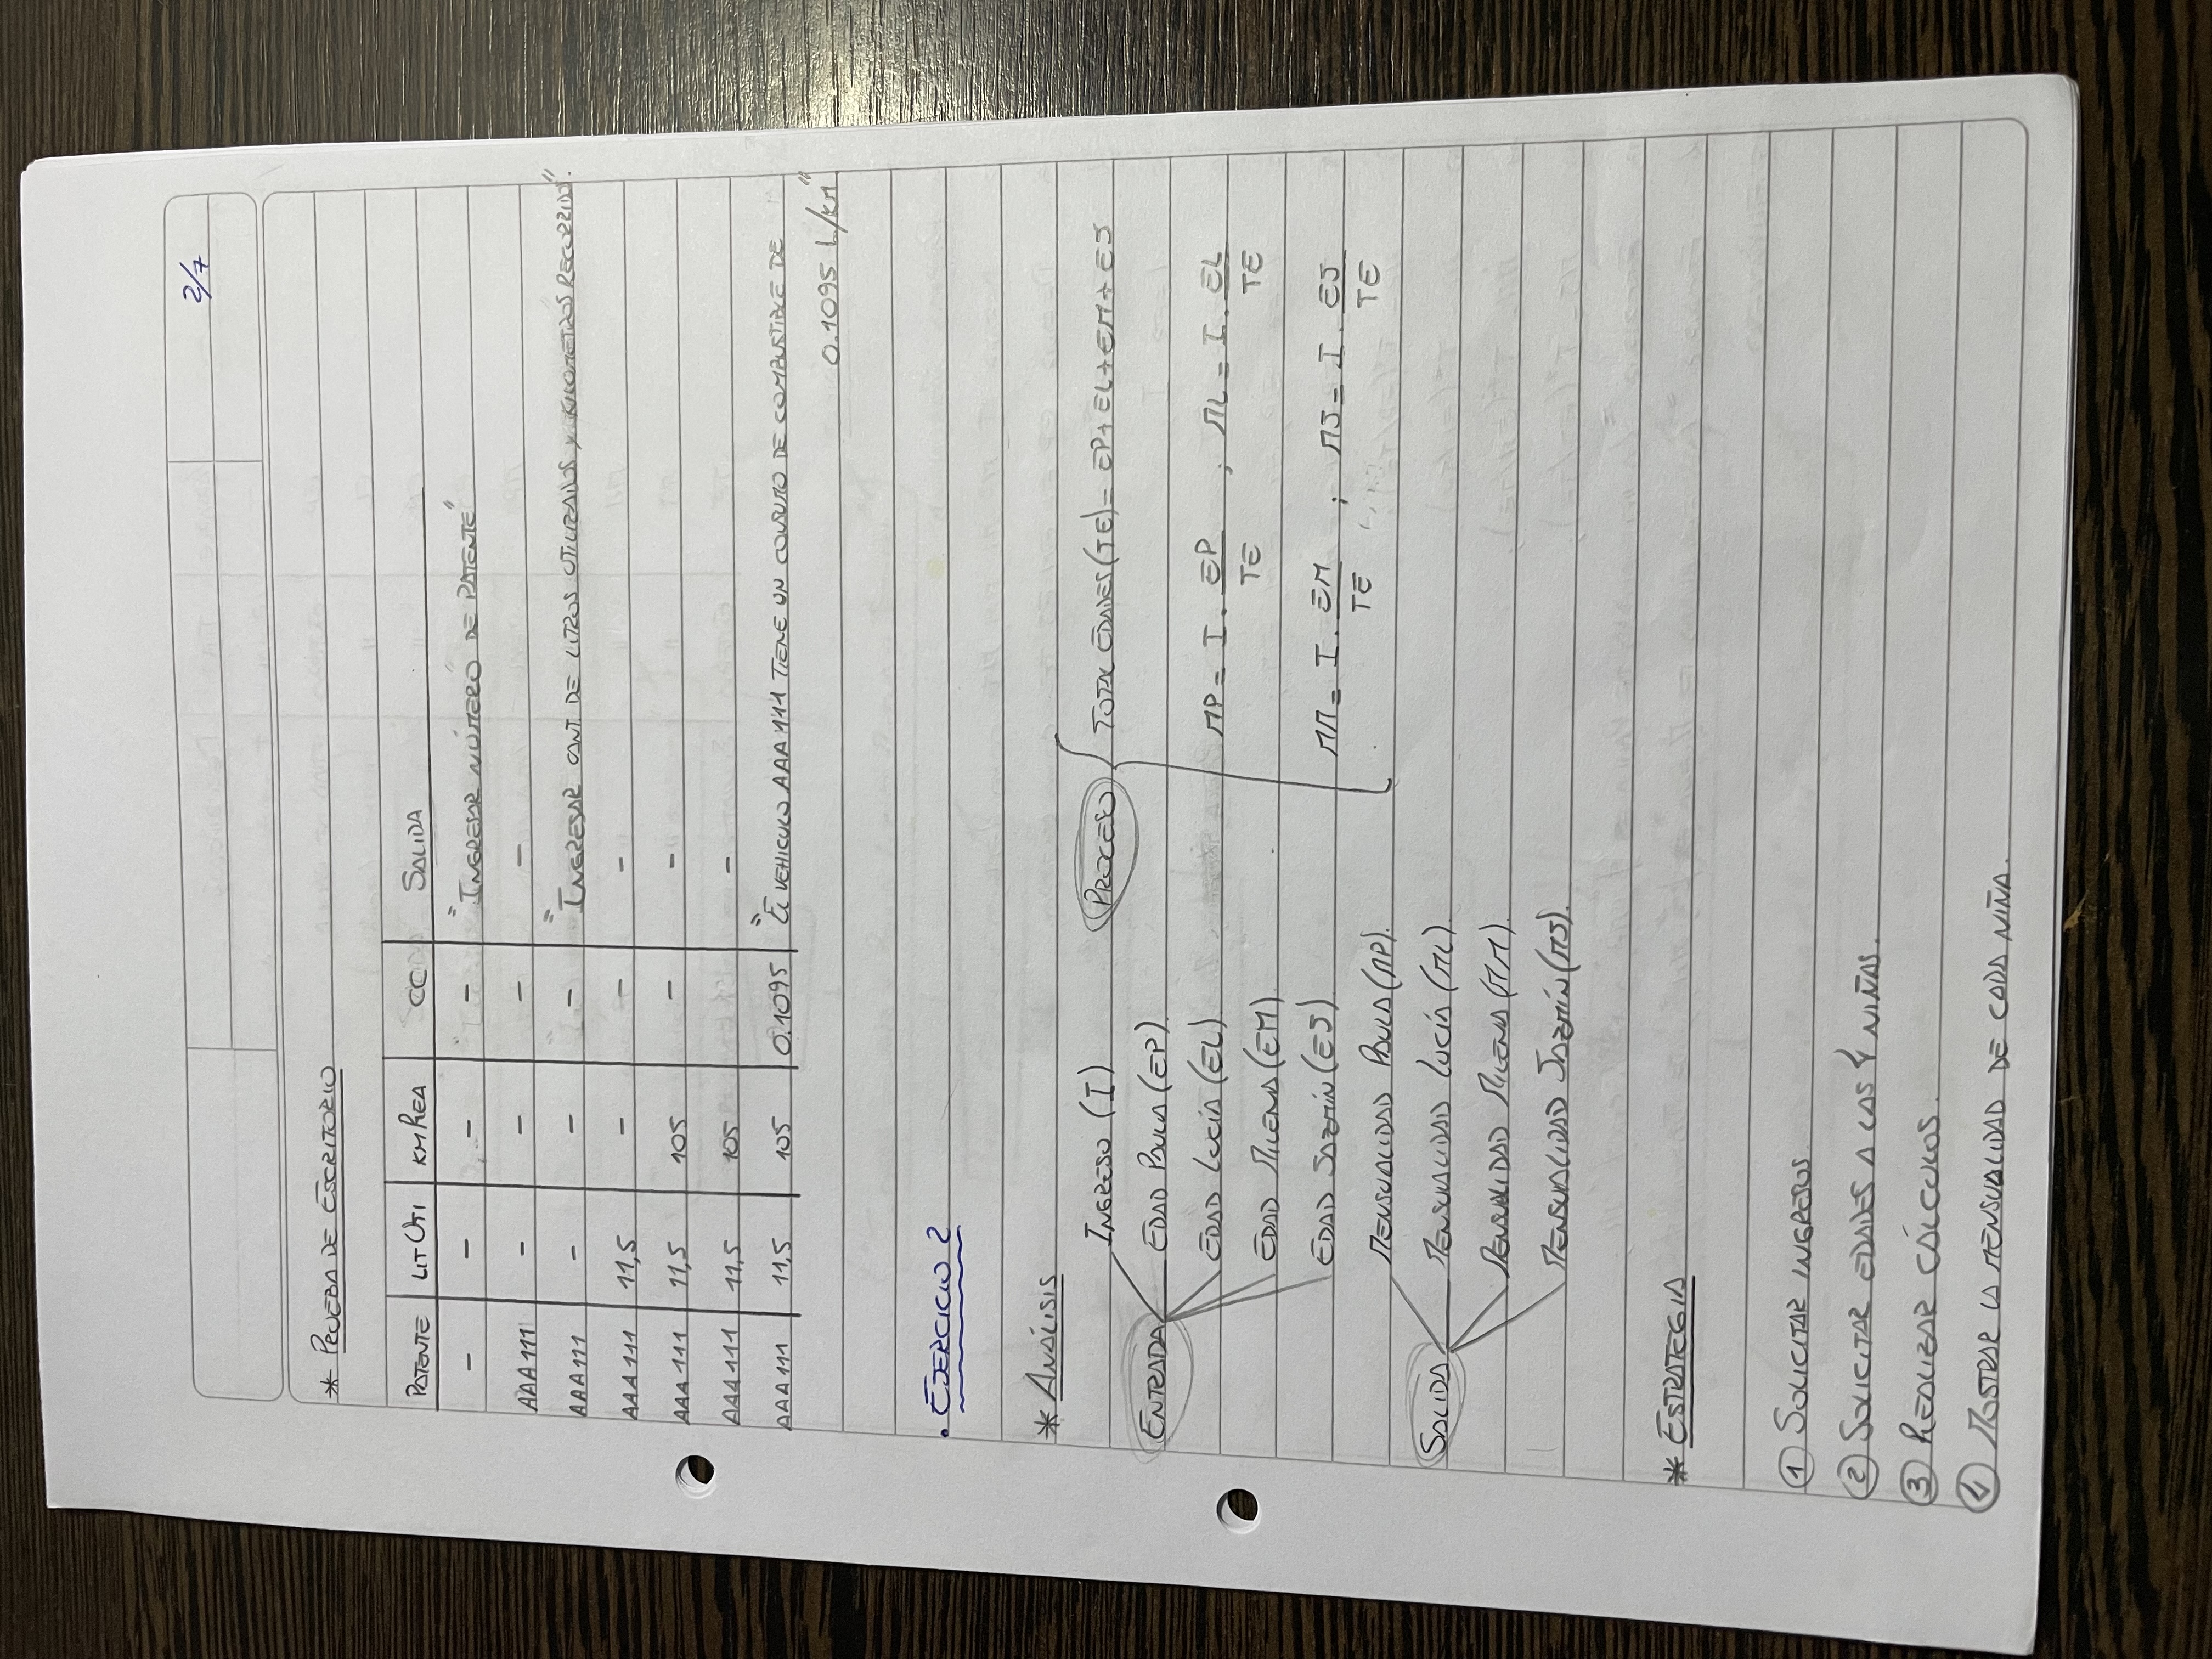 2/7
* PRUEBA DE ESCRITORIO
PATENTE LIT UTI KM REA CC SALIDA
– – – – "INGRESAR NÚMERO DE PATENTE"
AAA 111 – – – –
AAA 111 – – – "INGRESAR CANT. DE LITROS UTILIZADOS y KILOMETROS RECORRIDOS".
AAA 111 11,5 – – –
AAA 111 11,5 105 – –
AAA 111 11,5 105 –
AAA 111 11,5 105 0.1095 "EL VEHICULO AAA 111 TIENE UN CONSUMO DE COMBUSTIBLE DE
0.1095 L/KM"
. EJERCICIO 2
* ANÁLISIS
INGRESO (I) PROCESO TOTAL EDADES (TE) = EP + EL + EM + EJ
ENTRADA EDAD PAULA (EP).
EDAD LUCÍA (EL) MP = I . EP/TE ; ML = I . EL/TE
EDAD MILENA (EM)
EDAD JAZMÍN (EJ) MM = I . EM/TE ; MJ = I . EJ/TE
MENSUALIDAD PAULA (MP).
SALIDA MENSUALIDAD LUCÍA (ML).
MENSUALIDAD MILENA (MM).
MENSUALIDAD JAZMÍN (MJ).
* ESTRATEGIA
1 SOLICITAR INGRESOS
2 SOLICITAR EDADES A LAS 4 NIÑAS.
3 REALIZAR CÁLCULOS.
4 MOSTRAR LA MENSUALIDAD DE CADA NIÑA.